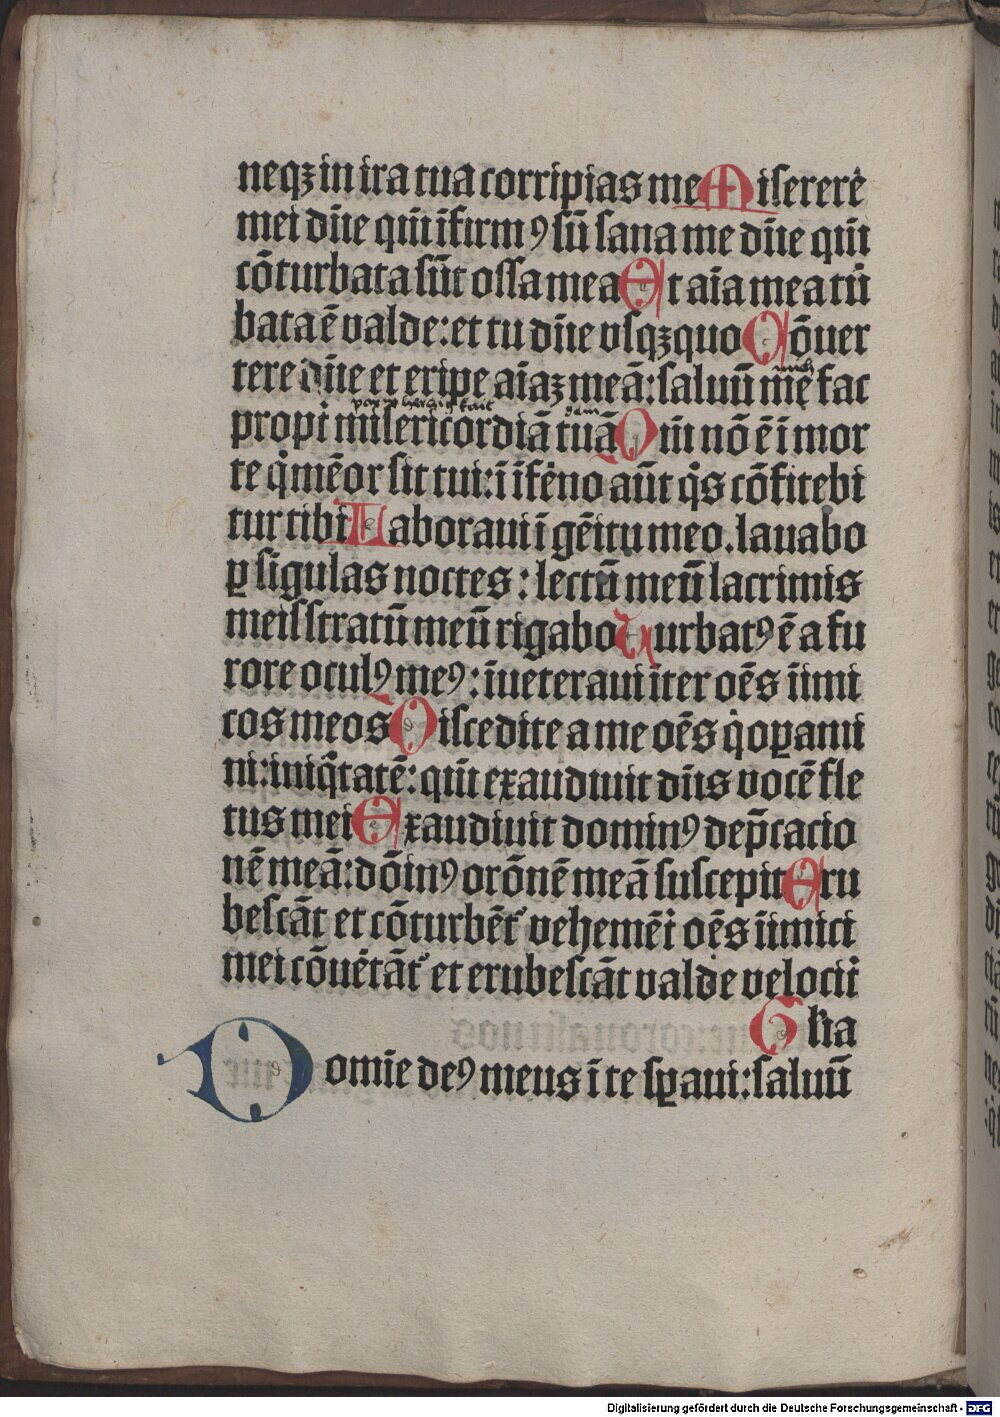 neqꝫ in ira tua corripias me Miserere
mei dn̄e qm̄ īfirmꝰ sū sana me dn̄e qm̄
cōturbata sūt ossa mea Et aīa mea tur
bata ē valde: et tu dn̄e vsqꝫquo Cōuer
tere dn̄e et eripe aīaꝫ meā: saluū me fac
mich
propt̄ misericordiā tuā Qm̄ nō ē ī mor
te q̇ mēor sit tui: ī īferno aūt q̇s cōfitebi
tur tibi Laboraui ī gēitu meo. lauabo
ꝑ sīgulas noctes: lectū meū lacrimis
meis stratū meū rigabo Turbatꝰ ē a fu
rore oculꝰ meꝰ: īueteraui īter oēs īimi
cos meos Discedite a me oēs q̇ oꝑami
ni: iniq̇tatē: qm̄ exaudiuit dn̄s vocē fle
tus mei Exaudiuit dominꝰ dep̄cacio
nē meā: dōinꝰ orōnē meā suscepit Eru
bescāt et cōturbēt᷑ vehemēt̄ oēs īimici
mei cōuertāt᷑ et erubescāt valde velocit̄
Glīa
Domīe deꝰ meus ī te sꝑaui: saluū
Digitalisierung gefördert durch die Deutsche Forschungsgemeinschaft - DFG